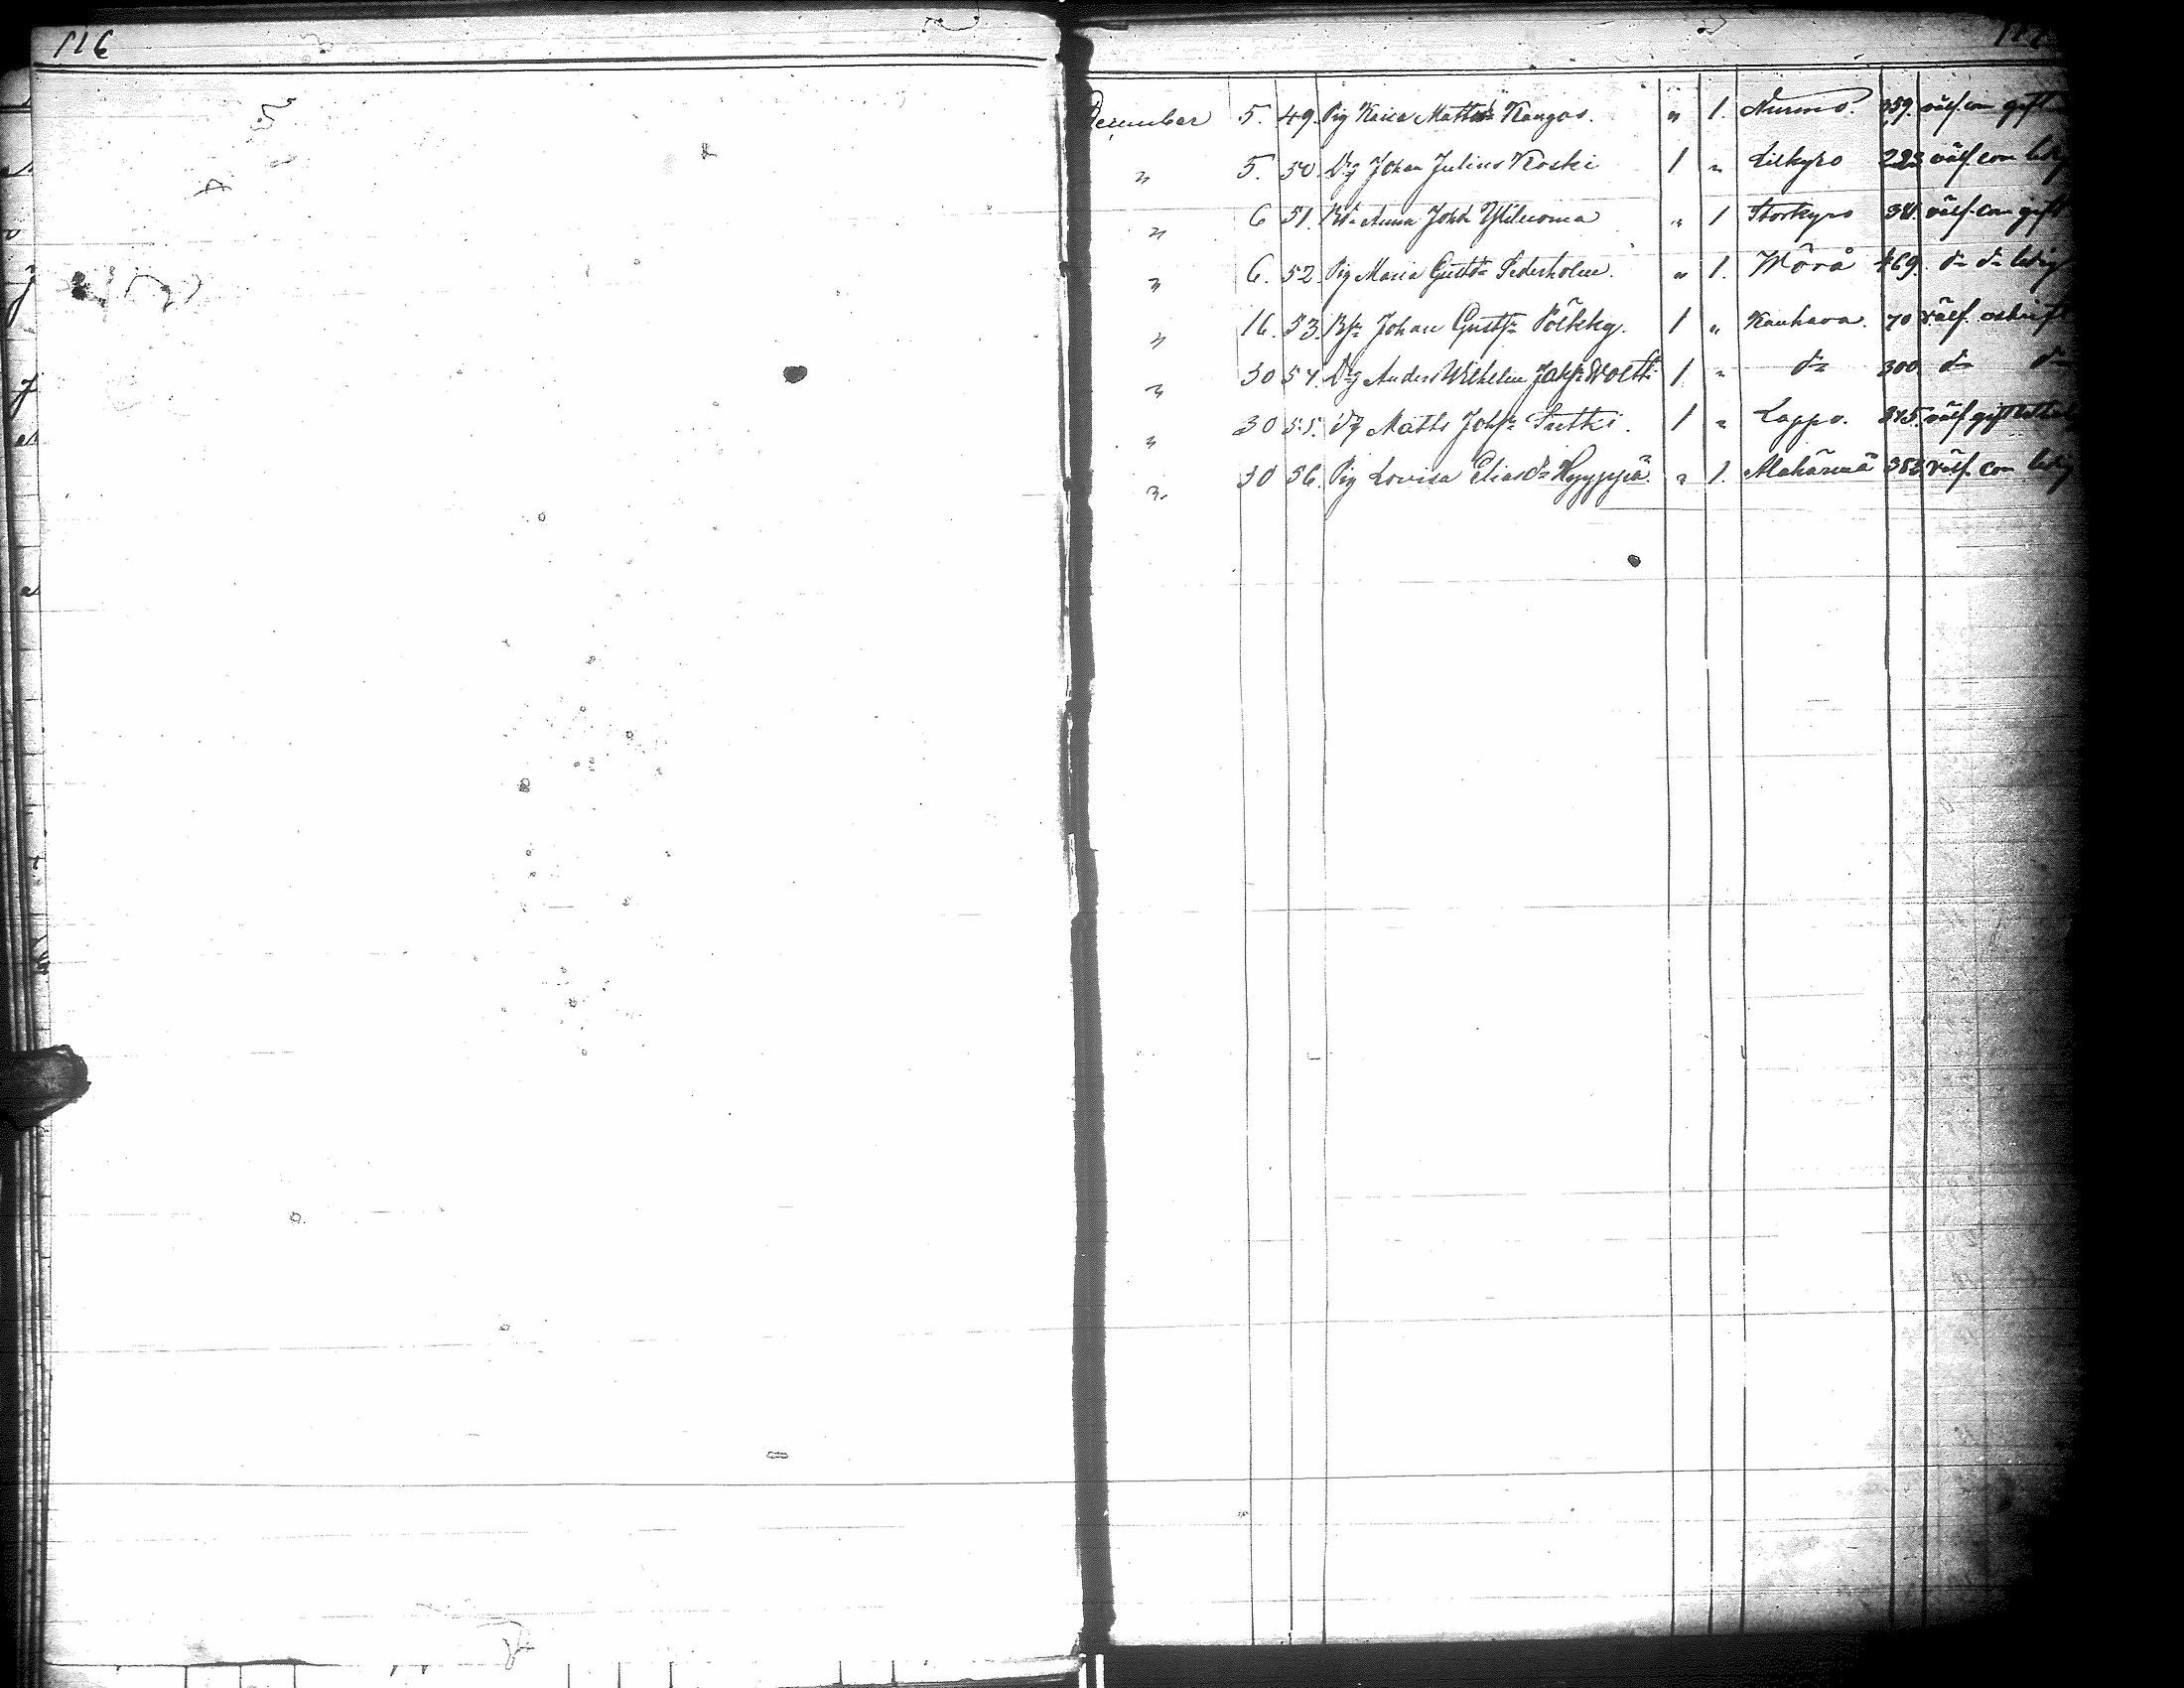 116
December 5. 49. Pig Kaisa Mattsdr Kangas. " 1. Nurmo. 359. välf. com gift
" 5. 50. Dg Johan Julius Koski 1 " Lillkyro 223 välf. com ledig
" 6 51. Anna Johd Yliluoma " 1 Storkyro 38. välf. com gift
" 6. 52. Pig Maria Gustdr Sederholm. " 1. Wörå 469. do do ledig
" 16. 53. Johan Gustfsn Pölkky. 1 " Kauhava. 70 välf.
" 30 54. Dg Anders Wilhelm Jakfsn Woltti 1 " do 300 do do
" 30 55. Dg Matts Johsn Sutki. 1 " Lappo. 345. välf.
" 30 56. Pig Lovisa Eliasdr Hyyppä. " 1. Alahärmä 353 välf. com ledig